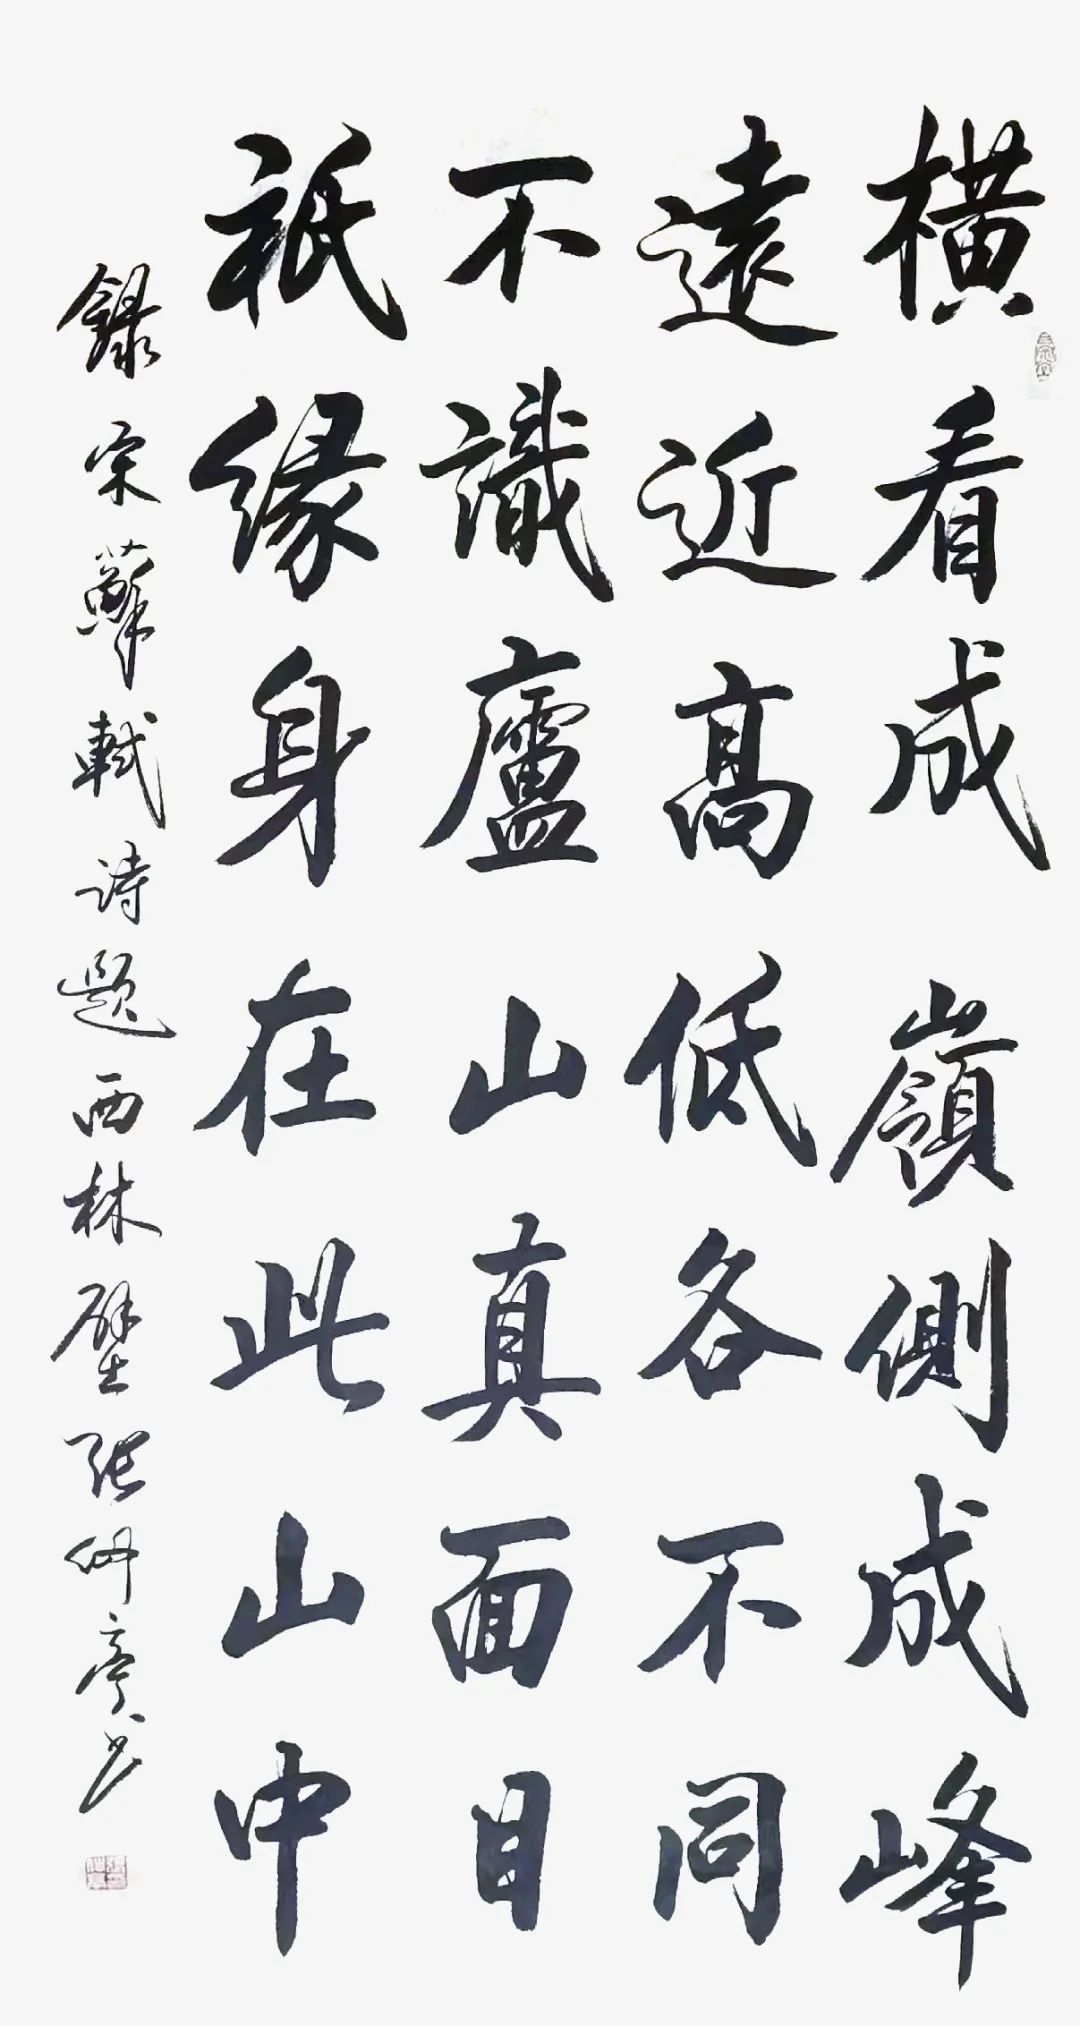 橫看成嶺側成峰
遠近高低各不同
不識廬山真面目
祇緣身在此山中
録宋蘇軾詩題西林壁張仲亭书